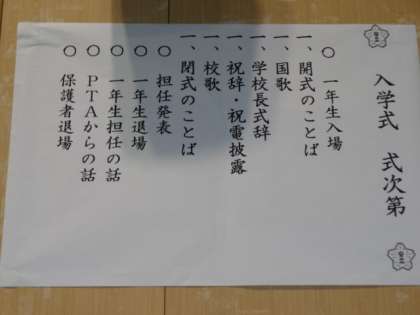 入学式 式次第
○ 一年生入場
一、開式のことば
一、国歌
一、学校長式辞
一、祝辞・祝電披露
一、校歌
一、閉式のことば
○ 担任発表
○ 一年生退場
○ 一年生担任の話
○ PTAからの話
○ 保護者退場